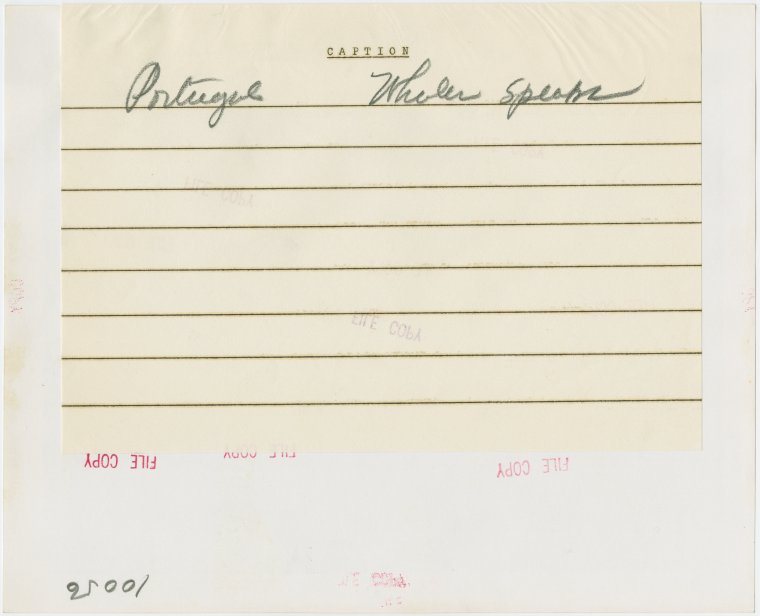 CAPTION
Portugal Whaler Speaks
FILE COPY
FILE COPY
FILE COPY
FILE COPY
FILE COPY
10056